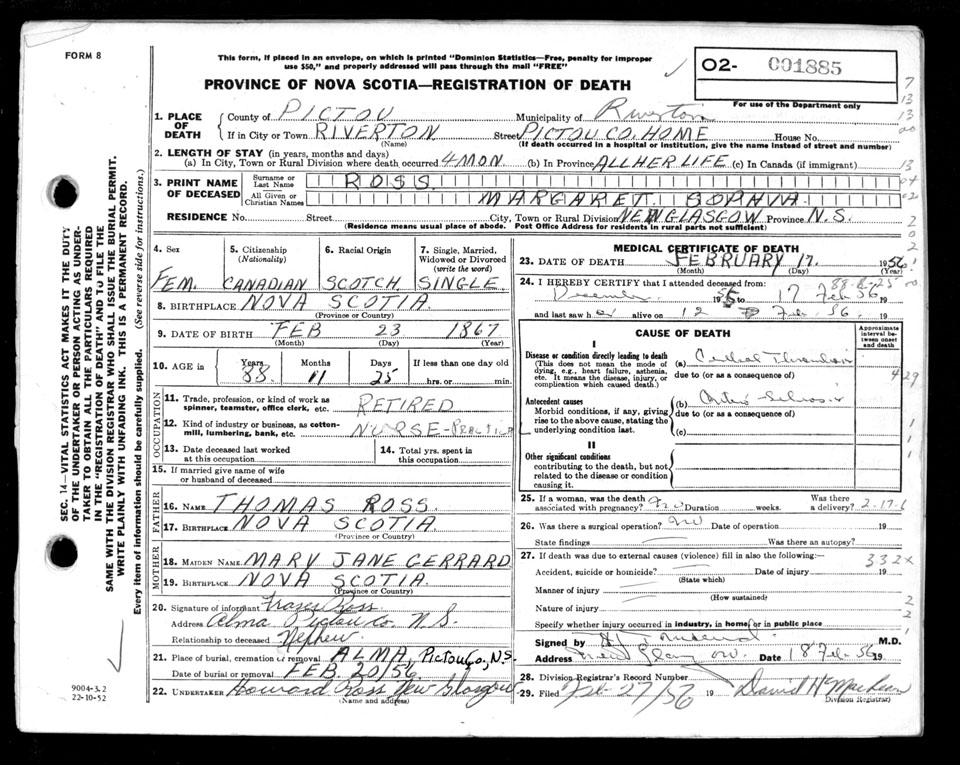 FORM 8
This form, if placed in an envelope, on which is printed "Dominion Statistics—Free, penalty for improper
use $50," and properly addressed will pass through the mail "FREE"
PROVINCE OF NOVA SCOTIA—REGISTRATION OF DEATH
O2- 001885
For use of the Department only
1. PLACE OF DEATH
County of PICTOU Municipality of Riverton
If in City or Town RIVERTON Street PICTOU CO. HOME House No.
(Name) (If death occurred in a hospital or institution, give the name instead of street and number)
2. LENGTH OF STAY (in years, months and days)
(a) In City, Town or Rural Division where death occurred 4 MON. (b) In Province ALL HER LIFE (c) In Canada (if immigrant)
3. PRINT NAME OF DECEASED
Surname or Last Name ROSS
All Given or Christian Names MARGARET SOPHIA
RESIDENCE No. Street City, Town or Rural Division NEW GLASGOW Province N.S.
(Residence means usual place of abode. Post Office Address for residents in rural parts not sufficient)
4. Sex 5. Citizenship (Nationality) 6. Racial Origin 7. Single, Married, Widowed or Divorced (write the word)
FEM. CANADIAN SCOTCH SINGLE
8. BIRTHPLACE NOVA SCOTIA
(Province or Country)
9. DATE OF BIRTH FEB 23 1867
(Month) (Day) (Year)
10. AGE in Years Months Days If less than one day old
88 11 25 hrs. or min.
OCCUPATION
11. Trade, profession, or kind of work as spinner, teamster, office clerk, etc. RETIRED
12. Kind of industry or business, as cotton-mill, lumbering, bank, etc. NURSE-PRACTICAL
13. Date deceased last worked at this occupation
14. Total yrs. spent in this occupation
15. If married give name of wife or husband of deceased
FATHER
16. NAME THOMAS ROSS
17. BIRTHPLACE NOVA SCOTIA
(Province or Country)
MOTHER
18. MAIDEN NAME MARY JANE GERRARD
19. BIRTHPLACE NOVA SCOTIA
(Province or Country)
20. Signature of informant Fraser Ross
Address Alma Pictou Co. N.S.
Relationship to deceased Nephew
21. Place of burial, cremation or removal ALMA, PICTOU Co, N.S.
Date of burial or removal FEB. 20/56
22. UNDERTAKER Howard Ross New Glasgow
(Name and address)
MEDICAL CERTIFICATE OF DEATH
23. DATE OF DEATH FEBRUARY 17. 1956
(Month) (Day) (Year)
24. I HEREBY CERTIFY that I attended deceased from: 88-8-25
December 1955 to 17 Feb 56
and last saw her alive on 12 Feb. 56.
CAUSE OF DEATH
Approximate interval between onset and death
I
Disease or condition directly leading to death
(This does not mean the mode of dying, e.g., heart failure, asthenia, etc. It means the disease, injury, or complication which caused death.)
(a) Cerebral Thrombosis
due to (or as a consequence of)
Antecedent causes
Morbid conditions, if any, giving rise to the above cause, stating the underlying condition last.
(b) Arterio-sclerosis
due to (or as a consequence of)
(c)
II
Other significant conditions
contributing to the death, but not related to the disease or condition causing it.
25. If a woman, was the death associated with pregnancy? No Duration weeks. Was there a delivery? 2-17-1
26. Was there a surgical operation? No Date of operation 19
State findings Was there an autopsy?
27. If death was due to external causes (violence) fill in also the following:— 332x
Accident, suicide or homicide? Date of injury 19
(State which)
Manner of injury
(How sustained)
Nature of injury
Specify whether injury occurred in industry, in home, or in public place
Signed by M.D.
Address New Glasgow Date 18 Feb 56 19
28. Division Registrar's Record Number
29. Filed Feb-27/56 19 David H MacLean
(Division Registrar)
SEC. 14—VITAL STATISTICS ACT MAKES IT THE DUTY
OF THE UNDERTAKER OR PERSON ACTING AS UNDER-
TAKER TO OBTAIN ALL THE PARTICULARS REQUIRED
IN THE "REGISTRATION OF DEATH" AND TO FILE THE
SAME WITH THE DIVISION REGISTRAR WHO SHALL ISSUE THE BURIAL PERMIT.
WRITE PLAINLY WITH UNFADING INK. THIS IS A PERMANENT RECORD.
Every item of information should be carefully supplied. (See reverse side for instructions.)
9004-3.2
22-10-52